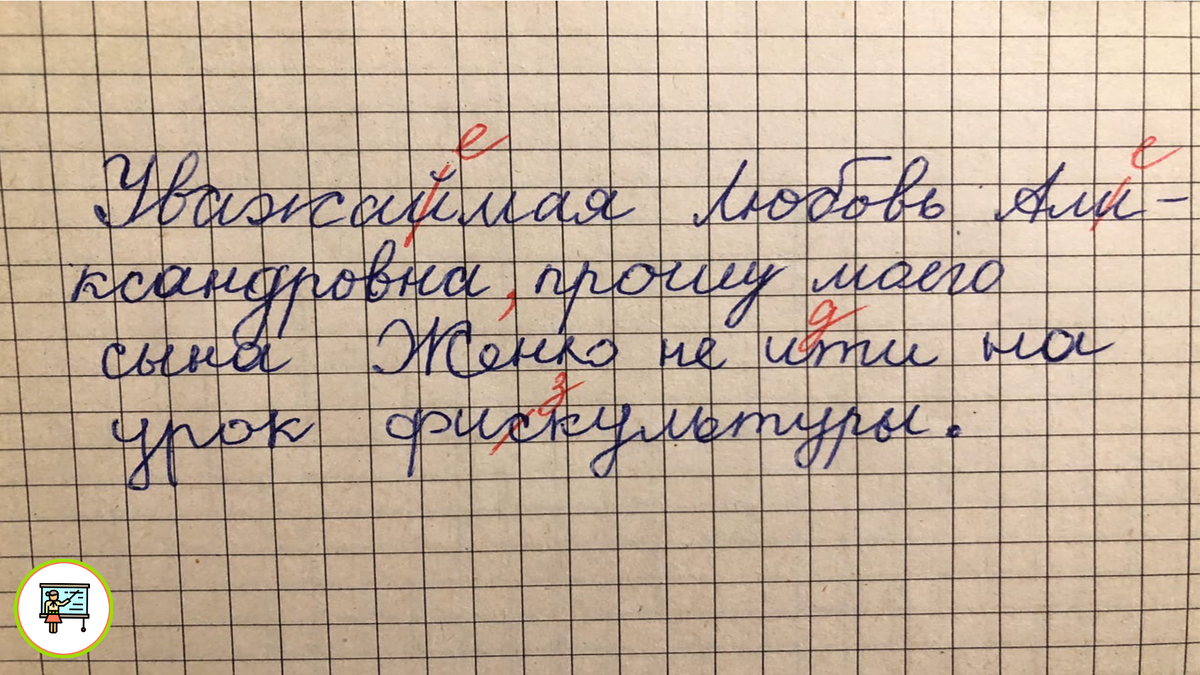 е е
Уважаймая Любовь Али-
ксандровна, прошу моего
д
сына Женю не ити на
з
урок фискультуры.